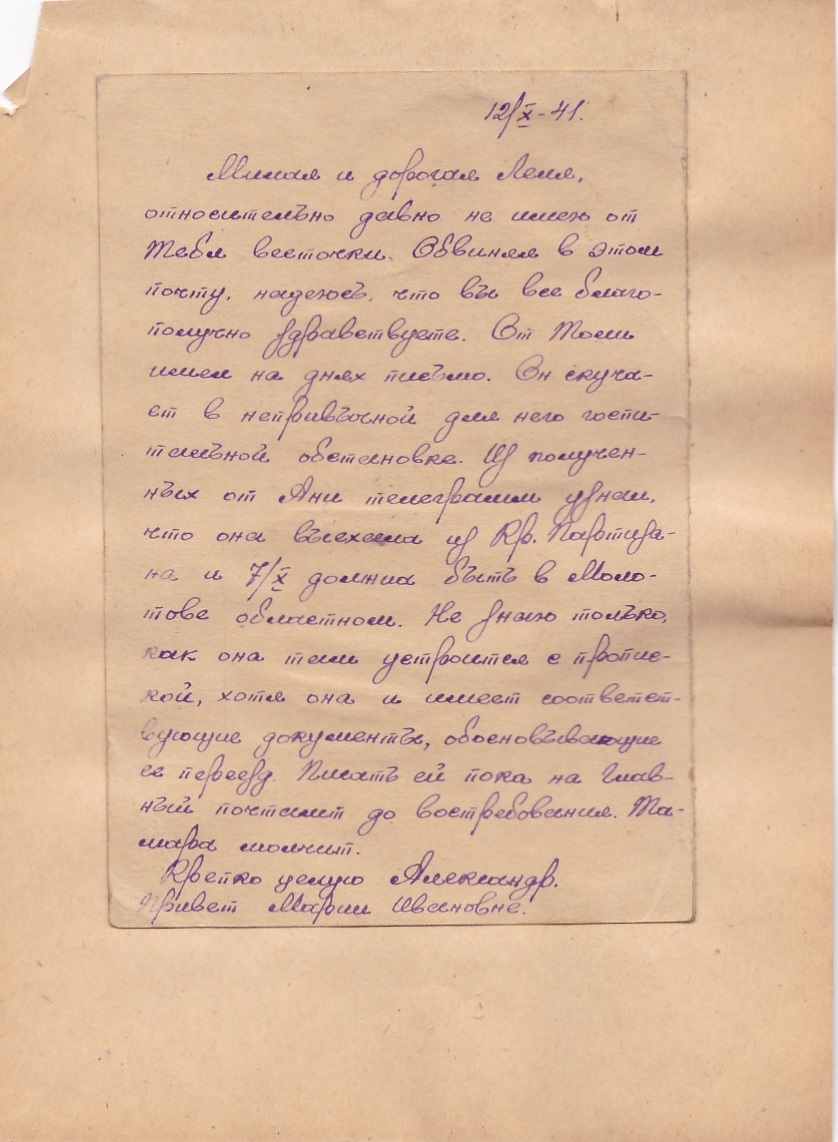 12/X-41.
Милая и дорогая Леля,
относительно давно не имею от
Тебя весточки. Обвиняя в этом
почту, надеюсь, что вы все благо-
получно здравствуете. От Томы
имел на днях письмо. Он скуча-
ет в непривычной для него госпи-
тальной обстановке. Из получен-
ных от Ани телеграмм узнал,
что она выехала из Кр. Партиза-
на и 7/X должна быть в Моло-
тове областном. Не знаю только,
как она там устроится с пропис-
кой, хотя она и имеет соответст-
вующие документы, обосновывающие
ее переезд. Писать ей пока на Глав-
ный почтамт до востребования. Та-
мара молчит.
Крепко целую Александр.
Привет Марии Ивановне.